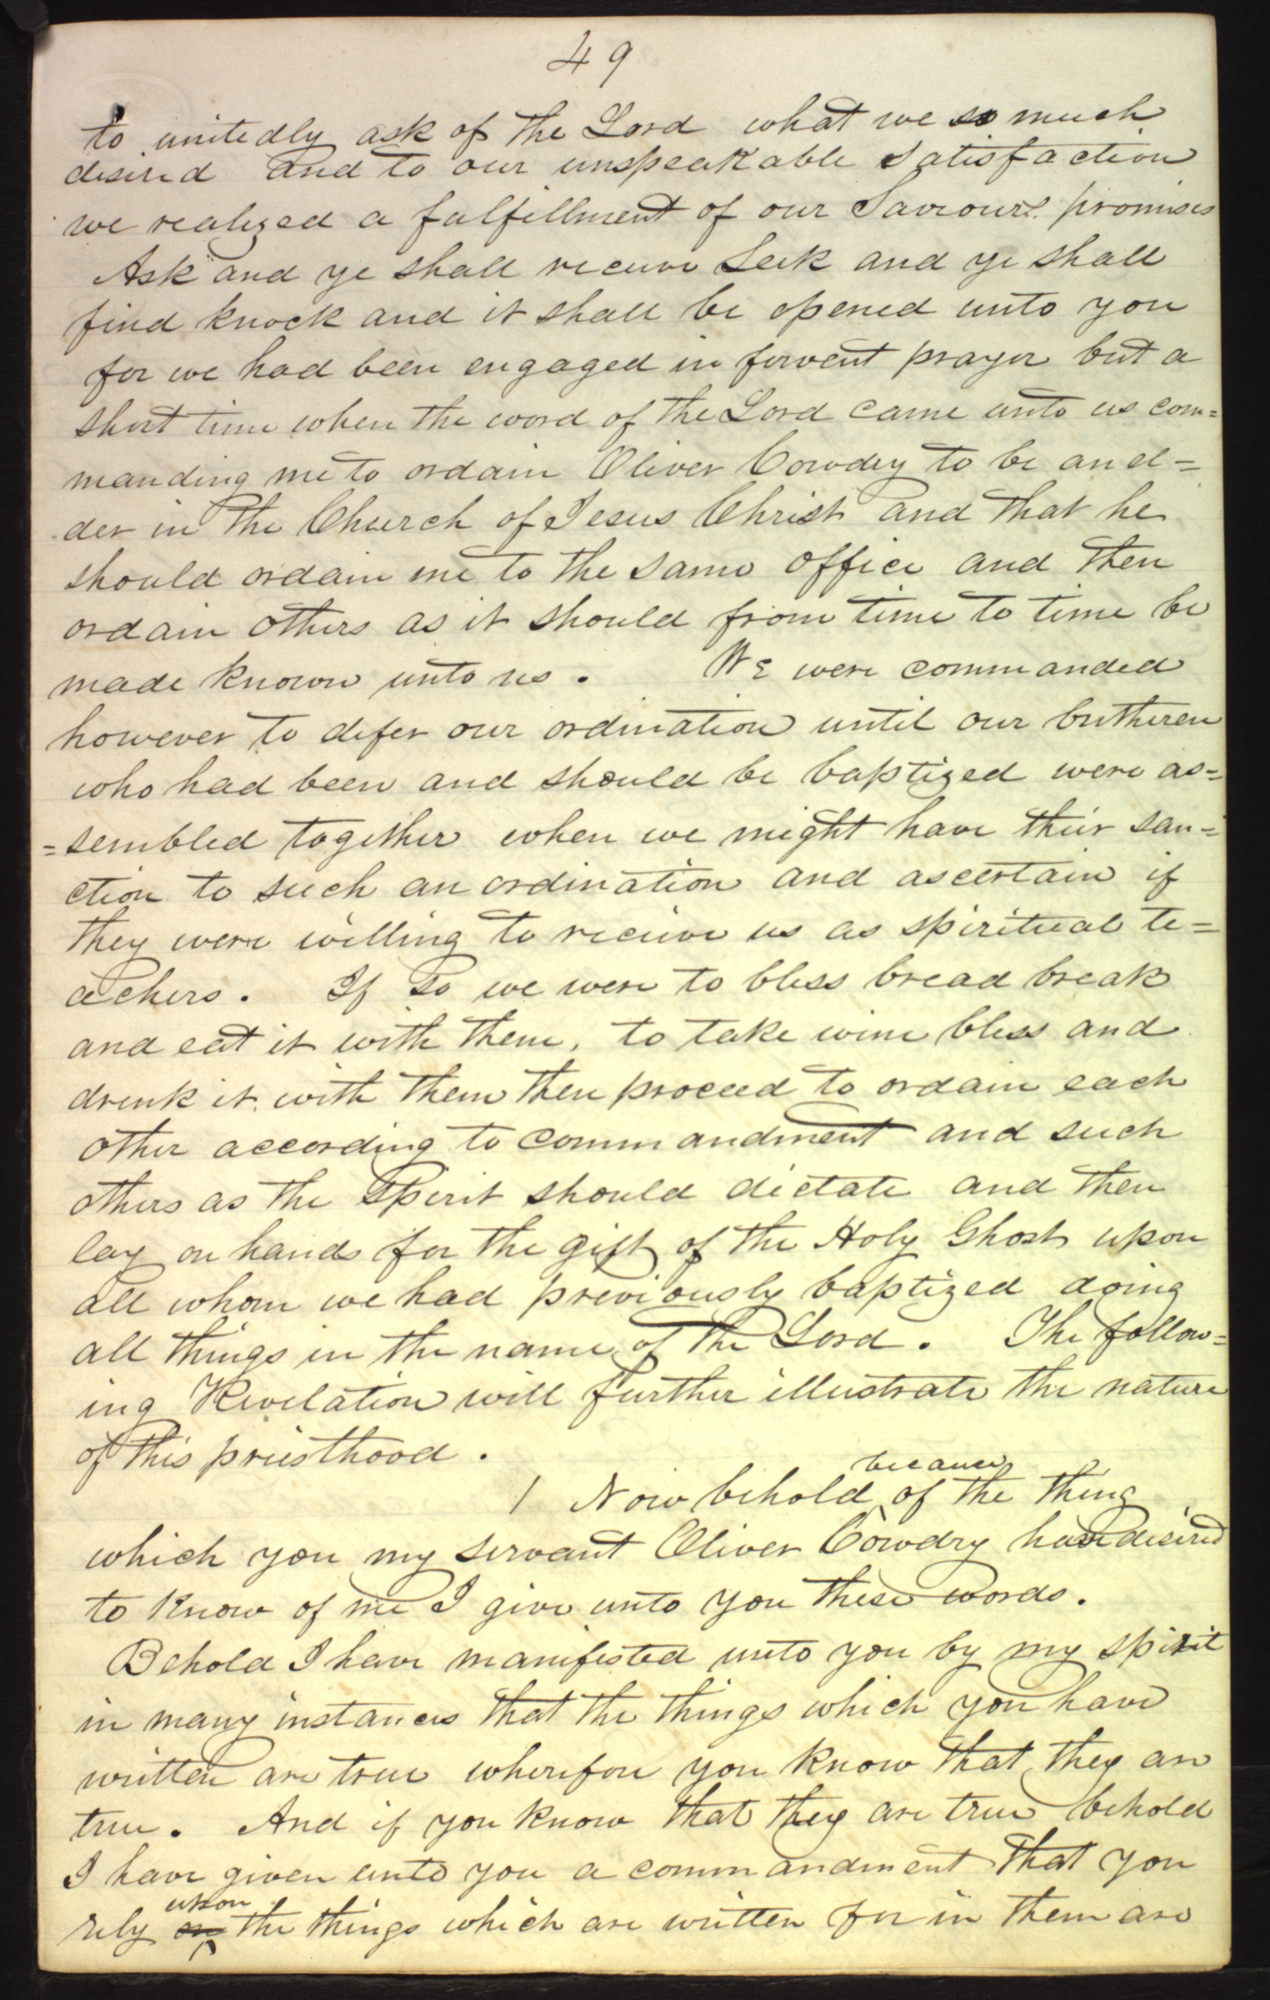 49
to unitedly ask of the Lord what we so much
desired and to our unspeakable satisfaction
we realized a fulfillment of our Saviours promises
Ask and ye shall receive Seek and ye shall
find knock and it shall be opened unto you
for we had been engaged in fervent prayer but a
short time when the word of the Lord came unto us com=
manding me to ordain Oliver Cowdey to be an el=
der in the Church of Jesus Christ and that he
should ordain me to the same office and then
ordain others as it should from time to time be
made known unto us. We were commanded
however to defer our ordination until our brtheren
who had been and should be baptized were as=
=sembled together when we might have their san=
ction to such an ordination and ascertain if
they were willing to receive us as spiritual te=
achers. If so we were to bless bread break
and eat it with them, to take wine bless and
drink it with them then proceed to ordain each
other according to commandment and such
others as the Spirit should dictate and then
lay on hands for the gift of the Holy Ghost upon
all whom we had previously baptized doing
all things in the name of the Lord. The follow=
ing Revelation will further illustrate the nature
of this priesthood.
because
1 Now behold of the thing
which you my servant Oliver Cowdry have desired
to know of me I give unto you these words.
Behold I have manifested unto you by my spirit
in many instances that the things which you have
written are true wherefore you know that they are
true. And if you know that they are true behold
I have given unto you a commandment that you
upon
rely on the things which are written for in them are